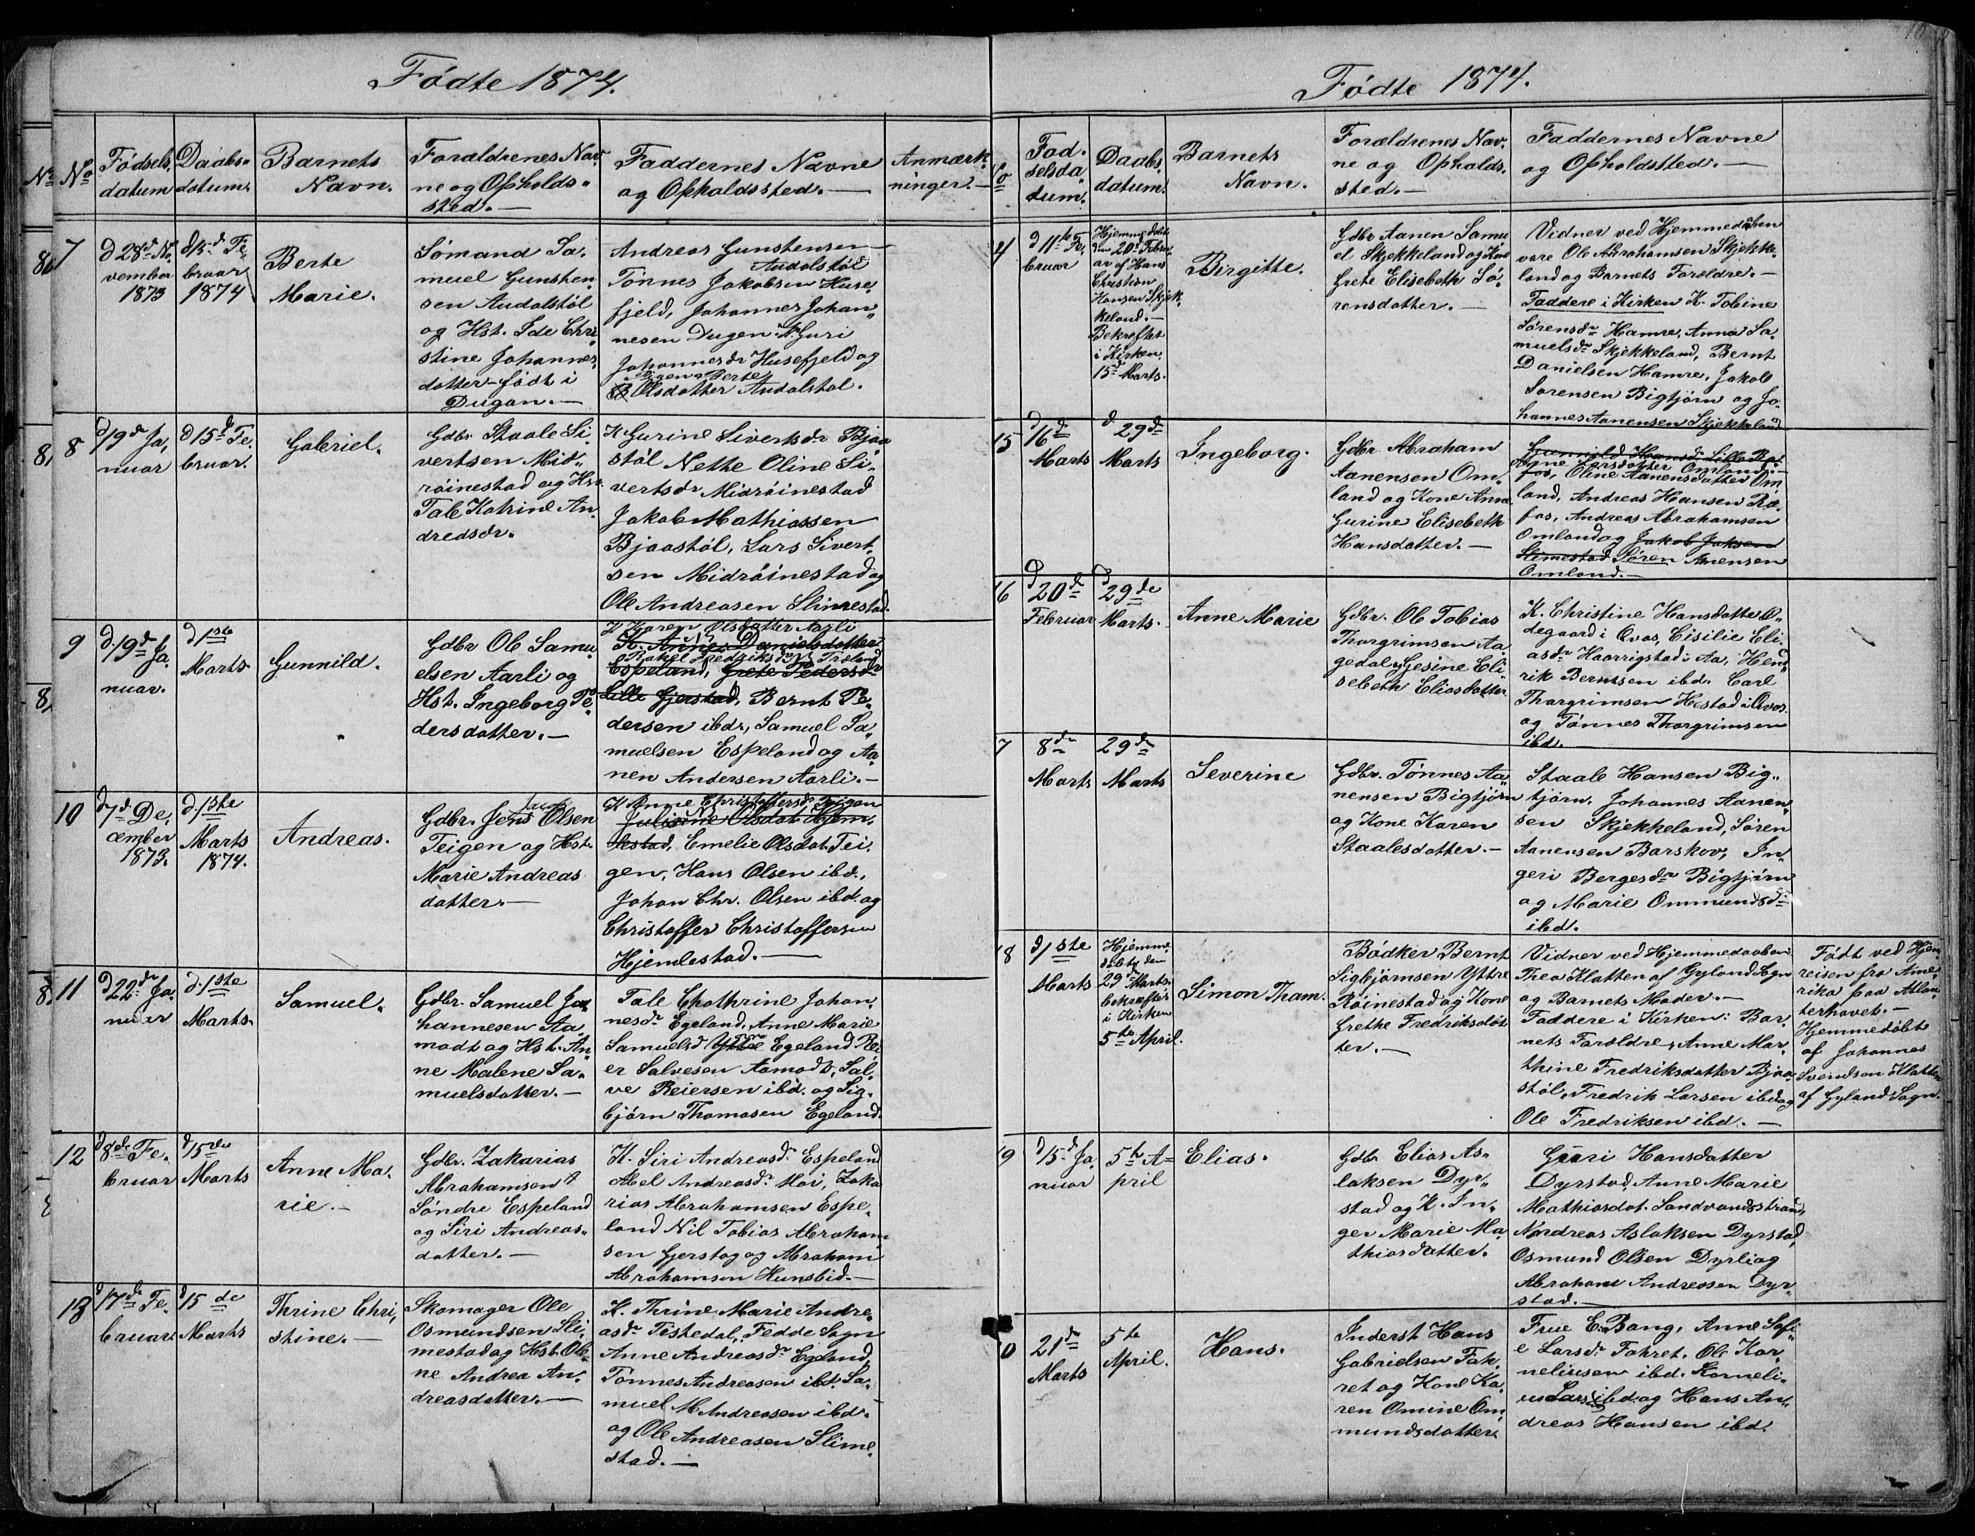 Fødte 1874.
No
Fødsels
datum
Daabs-
datum.
Barnets
Navn.
Forældrenes Nav-
ne og Opholds-
sted.
Faddernes Navne
og Opholdssted.
Anmærk-
ninger.
7
d 28de No
vember
1873
d 15de Fe
bruar
1874
Berte
Marie.
Sømand Sa-
muel Gunsten-
sen Audalstøl
og Hst. Ide Chri
stine Johannes-
datter født i
Dugan.
Andreas Gunstensen
Audalstøl
Tønnes Jakobsen Huse-
fjeld, Johannes Johan-
nesen Dugen K Guri
Johannesdr Husefjeld og
Berte
Olsdatter Audalstøl.
8
d 19de Ja-
nuar
d 15de Fe-
bruar.
Gabriel.
Gdbr Staale Si-
vertsen Mid-
røinestad og Hst.
Tale Katrine An-
dredsdr.
K Gurine Sivertsdr Bjaa
støl Nette Oline Si-
vertsdr Midrøinestad
Jakob Mathiassen
Bjaastøl, Lars Sivert-
sen Midrøinestad og
Ole Andreasen Slimestad.
9
d. 19de Ja-
nuar.
d 1ste
Marts.
Gunnild.
Gdbr Ole Samu-
elsen Aarli og
Hst. Ingeborg Pe-
dersdatter.
K Karen Olsdatter Aarli
K. Anne Danielsdatter
Rakel Fredriksdr
Espeland, Grete Pedersdr
Lille Gjerstad, Bernt Pe-
dersen ibdr, Samuel Sa-
muelsen Espeland og Aa-
nen Andersen Aarli.
10
d 7de De-
cember
1873.
d. 1ste
Marts
1874.
Andreas.
Gdbr. Jens Olsen
Teigen og Hst.
Marie Andreas
datter.
K Anne Christoffersdr Teigen
Julianne Olsdat Hjem-
lestad, Emelie Olsdat. Tei-
gen, Hans Olsen ibd.,
Johan Chr. Olsen ibd og
Christoffer Christoffersen
Hjemlestad.
11
d 22de Ja-
nuar
d. 1ste
Marts.
Samuel.
Gdbr. Samuel Jo-
hannesen Aa-
modt og Hst. An-
ne Malene Sa-
muelsdatter.
Tale Chathrine Johan-
nesdr Egeland, Anne Marie
Samuelsd Yttre Egeland Rei
er Salvesen Aamodt, Sal-
ve Reiersen ibd. og Sig-
bjørn Thomasen Egeland.
12
d 8de Fe-
bruar
d 15de
Marts
Anne Ma-
rie.
Gdbr. Zakarias
Abrahamsen
Søndre Espeland
og Siri Andreas-
datter.
K. Siri Andreasdr Espeland
Abel Andreasdr Moi, Zaka
rias Abrahamsen Espe-
land Nil Tobias Abraham
sen Gjerstag og Abraham
Abrahamsen Hunsbid.
13
d 17de Fe-
bruar
d 15de
Marts
Thrine Chri-
stine.
Skomager Ole
Osmundsen Sli-
mestad og Hst. Ol-
ne Andrea An-
dreasdatter.
K. Thrine Marie Andre-
asdr Testedal, Fedde Sogn
Anne Andreasdr Egeland,
Tønnes Andreasen ibd. Sa-
muel M Andreasen ibd.
og Ole Andreasen Slime-
stad.
Fødte 1874.
No
Fød-
selsda-
tum.
Daabs-
datum.
Barnets
Navn.
Forældrenes Nav-
ne og Opholds-
sted.
Faddernes Navne
og Opholdssted.
4
d 11te Fe-
bruar
Hjemmedøbt
den 20de Febru
ar af Hans
Christian
Hansen Skjek-
keland.
Bekræftet
i Kirken
15de Marts.
Birgitte.
Gdbr Aanen Samu
el Skjekkeland og Kone
Grete Elisebeth Sø-
rensdatter.
Vidner ved Hjemmedaaben
vare Ole Abrahamsen Skjekke-
land og Barnets Forældre.
Faddere i Kirken K. Tobine
Sørensdr Hamre, Anna Sa-
muelsdr Skjekkeland, Bernt
Danielsen Hamre, Jakob
Sørensen Bigtjørn og Jo-
hannes Aanensen Skjekkeland
15
d 16de
Marts
d 29de
Marts
Ingeborg.
Gdbr Abraham
Aanensen Om-
land og Kone Anne
Gurine Elisebeth
Hansdatter.
Gunnild Hansdr Lille Rø
Anne Larsdatter Omland.
fos, Oline Aanensdatter Om
land, Andreas Hansen Rø-
fos, Andreas Abrahamsen
Omland og Jakob Jaksen
Slimestad Søren Aanensen
Omland.
16
d 20de
Februar
d 29de
Marts.
Anne Marie
Gdbr. Ole Tobias
Thorgrimsen Aa-
gedal, Gesine Eli-
sebeth Eliasdatter
K. Christine Hansdatter O-
degaard i Qvas, Cisilie Eli-
asdr Haarrigstad i Aa, Hend
rik Berntsen ibd. Carl
Thorgrimsen Hestad i Qvas
og Tønnes Thorgrimsen
ibd.
7
8de
Marts
29de
Marts
Severine
Gdbr. Tønnes Aa-
nensen Bigtjørn
og Kone Karen
Staalesdatter.
Staale Hansen Big-
tjørn, Johannes Aanen-
sen Skjekkeland, Søren
Aanensen Barskov, In-
geri Bergesdr Bigtjørn
og Marie Ommundsd
ibd.
18
d 1ste
Marts
Hjemme
døbt den
29de Marts
bekræftet
i Kirken
5te April.
Simon Tham.
Bødker Bernt
Sigbjørnsen Yttre
Røinestad og Kone
Grethe Fredriksdat
ter.
Vidner ved Hjemmedaaben
Thea Klatten af Gyland Sogn
og Barnets Moder.
Faddere i Kirken: Bar-
nets Forældre, Anne Mar-
thine Fredriksdatter Bjaa-
støl, Fredrik Larsen ibd og
Ole Fredriksen ibd.
Født ved Hjem
reisen fra Ame-
rika paa Atlan-
terhavet.
Hjemmedøbt
af Johannes
Svendsen Klatten
af Gyland Sogn.
19
d 15de Ja-
nuar
5te A-
pril
Elias.
Gdbr Elias As-
laksen Dyr-
stad og K. In-
ger Marie Ma-
thiasdatter.
Guri Hansdatter
Dyrstad, Anne Marie
Mathiasdat. Sandvandsstrand,
Andreas Aslaksen Dyrstad,
Osmund Olsen Dyrli og
Abraham Andreasen Dyr-
stad.
0
21de
Marts
5te
April.
Hans.
Inderst Hans
Gabrielsen Fak-
ret og Kone Ka-
ren Omine Om-
mundsdatter.
Frue E. Bang, Anne Sofi-
e Larsdr Fakret. Ole Kor-
neliusen ibd. Korneli-
us Lars. ibd og Hans An-
dreas Hansen ibd.